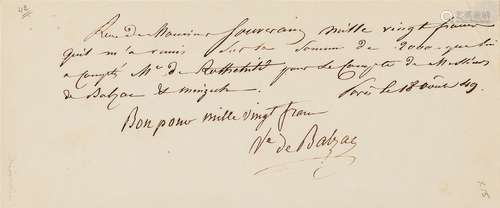 Reçu de Monsieur Souverain mille vingt francs
qu'il m'a remis sur la somme de 2000 que lui
a compté Mr de Rothschild pour le compte de Messieurs
de Balzac &
Paris le 18 août 49
Bon pour mille vingt franc
Ve de Balzac